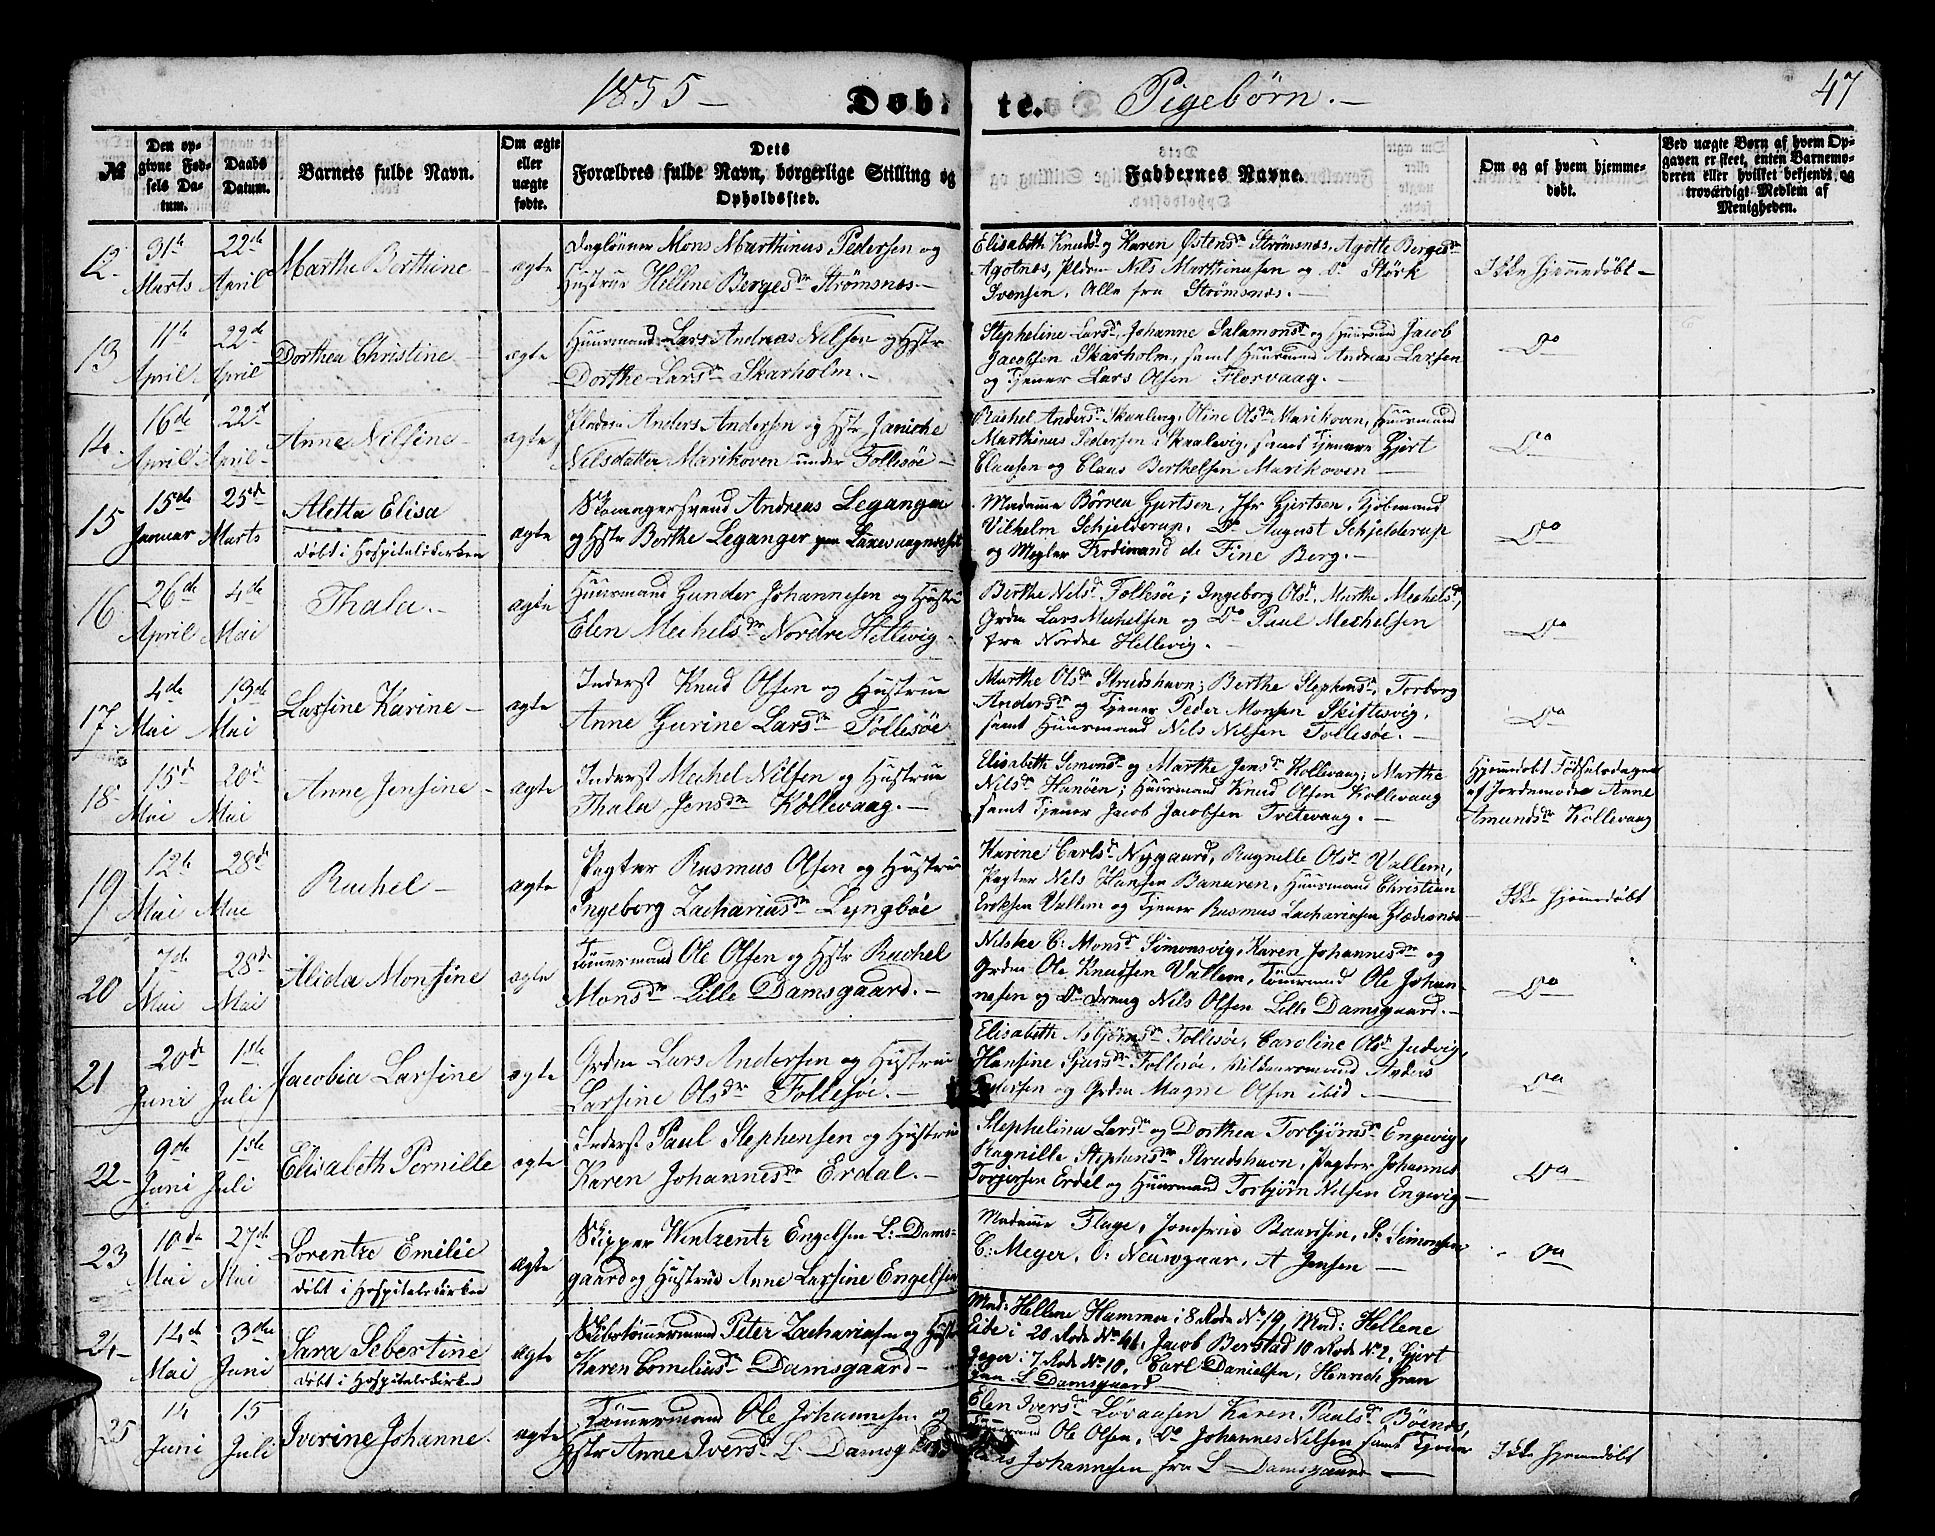 1855 -
Døbte.
Pigebørn. -
47
No
Den opgivne Fødsels Datum.
Daabs Datum.
Barnets fulde Navn.
Om ægte eller uægte fødte.
Dets Forældres fulde Navn, borgerlige Stilling og Opholdssted.
Faddernes Navne.
Om og af hvem hjemmedøbt.
Ved uægte Børn af hvem Opgaven er skeet, enten Barnemoderen eller hvilket bekjendt og troværdigt Medlem af Menigheden.
12
31te Marts
22de April
Marthe Berthine
ægte
Daglønner Mons Marthinus Pedersen og
Hustrue Hellene Bergesdr Strømsnes.
Elisabeth Knudsd og Karen Østensdr Strømsnes, Agotte Bergesdr
Agotnes, Pldm Nils Marthinussen og Do Størk
Svensen. Alle fra Strømsnes. -
Ikke hjemmedøbt -
13
11te April
22de April
Dorthea Christine
ægte
Huusmand Lars Andreas Nilsen og Hstr
Dorthe Larsdr Skarholm. -
Stepheline Larsd, Johanne Salamonsd og Huusmand Jacob
Jacobsen Skarholm, samt Huusmand Andreas Larsen
og Tjener Lars Olsen Florvaag. -
Do
14
16de April
22de April
Anne Nilsine
ægte
Anders Andersen og Hstr Janiche
Nilsdatter Marikoven under Follesøe -
Rachel Andersdr Skaalevig, Oline Olsdr Marikoven, Huusmand
Marthinus Pedersen i Skaalevig, samt Tjenere Gjert
Clausen og Claus Berthelsen Marikoven -
Do
15
15de Januar
25de Marts
Aletta Elisa
døbt i Hospitalskirken
ægte
Skomagersvend Andreas Leganger
og Hstr Berthe Leganger
Madame Børrea Gjertsen, Jfr Gjertsen, Kjøbmand
Vilhelm Schjelderup, Do August Schjelderup
og Megler Ferdinand de Fine Berg. -
Do
16
26de April
4de Mai
Thala. -
ægte
Huusmand Gunder Johannesen og Hustru
Elen Mechelsdr Nordre Hellevig -
Berthe Nilsd Follesøe; Ingeborg Olsd, Marthe Mechelsd,
Grdm Lars Mechelsen og Do Paul Mechelsen
fra Nordre Hellevig. -
Do
17
4de Mai
19de Mai
Larsine Karine -
ægte
Inderst Knud Olsen og Hustrue
Anne Gurine Larsdr Follesøe
Marthe Olsdr Strudshavn; Berthe Stephensd, Torborg
Andersdr og Tjener Peder Monsen Skiftesvig,
samt Huusmand Nils Nilsen Follesøe. -
Do
18
15d Mai
20d Mai
Anne Jensine -
ægte
Inderst Mechel Nilsen og Hustrue
Thala Jensdr Kollevaag. -
Elisabeth Simonsd og Marthe Jensd Kollevaag; Marthe
Nilsd Hanøen; Huusmand Knud Olsen Kollevaag
samt Tjener Jacob Jacobsen Tvetevaag. -
Hjemmedøbt Fødselsdagen
af Jordemoder Anne
Amundsdr Kollevaag
19
12te Mai
28de Mai
Rachel -
ægte
Pagter Rasmus Olsen og Hustrue
Ingeborg Zachariasdr Lyngbøe
Karine Carlsd Nygaard, Ragnille Olsdr Vallem,
Pagter Nils Hansen Banæren, Huusmand Christian
Eriksen Vallem og Tjener Rasmus Zachariasen
Ikke hjemmedøbt
20
7de Mai
28de Mai
Alida Monsine
ægte
Tømmermand Ole Olsen og Hstr Rachel
Monsdr Lille Damsgaard. -
Nilske C: Monsd Simonsvig, Karen Johannesdr og
Grdm Ole Knudsen Vallem, Tømmrmand Ole Johan-
nesen og Do dreng Nils Olsen Lille Damsgaard. -
Do
21
20de Juni
1ste Juli
Jacobia Larsine
ægte
Grdm Lars Andersen og Hustrue
Larsine Olsdr Follesøe. -
Elisabeth Asbjørnsdr Follesøe, Caroline Olsd Judvig,
Hansine Sjursdr Follesøe, Anders
Pedersen og Grdm Magne Olsen ibid -
Do
22
9de Juni
1ste Juli
Elisabeth Pernille
ægte
Inderst Paul Stephensen og Hustrue
Karen Johannesdr Erdal. -
Stephelina Larsd og Dorthea Torbjørnsd Engevig,
Ragnille Stephensdr Strudshavn, Pagter Johannes
Torgersen Erdal og Huusmand Torbjørn Nilsen Engevig -
Do
23
10de Mai
27de Mai
Lorentze Emilie
døbt i Hospitalskirken
ægte
Skipper Wentzentz Engelsen L: Dams-
gaard og Hustrue Anne Larsine Engelsen
Madame Flage, Jomfrue Baardsen, S: Simonsen
C: Meyer, O: Neusgaar, A Jensen -
Do
24
14de Mai
3die Juni
Sara Sebertine
døbt i Hospitalskirken
ægte
Skibstømmermand Peter Zachariasen og Hustr
Karen Corneliusdr Damsgaard -
Mad: Hellene Hammer i 8 Rode No 19, Mad: Hellene
Eide i 20 Rode No 46, Jacob Berstad 10 Rode No 2, Gjert
Geger i 7 Rode No 10, Carl Danielsen, Henrich Gran
L Damsgaard -
25
14 Juni
15 Juli
Iverine Johanne
ægte
Tømmermand Ole Johannesen og
Hstr Anne Iversd L. Damsg
Elen Iversdr Løvaasen Karen Paulsdr Bøenes,
Ole Olsen, Do Johannes Nilsen samt Tjener
Johannesen fra L Damsgaard -
Ikke hjemmedøbt